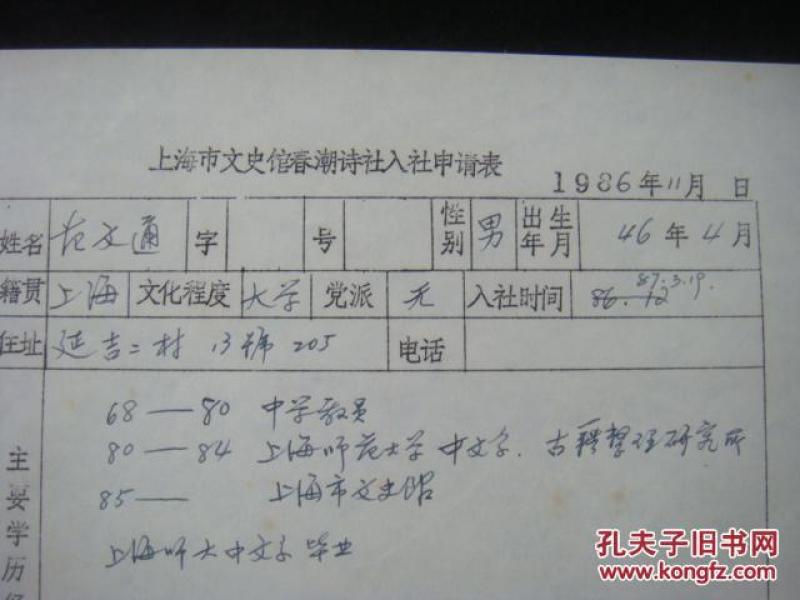 上海市文史馆春潮诗社入社申请表
1986年11月 日
姓名 范文通 字 号 性别 男 出生年月 46年4月
籍贯 上海 文化程度 大学 党派 无 入社时间 86.12 87.3.19.
住址 延吉二村 13號 205 电话
主要学历
68——80 中学教员
80——84 上海师范大学 中文系、古籍整理研究所
85—— 上海市文史馆
上海师大中文系毕业
孔夫子旧书网
www.kongfz.com